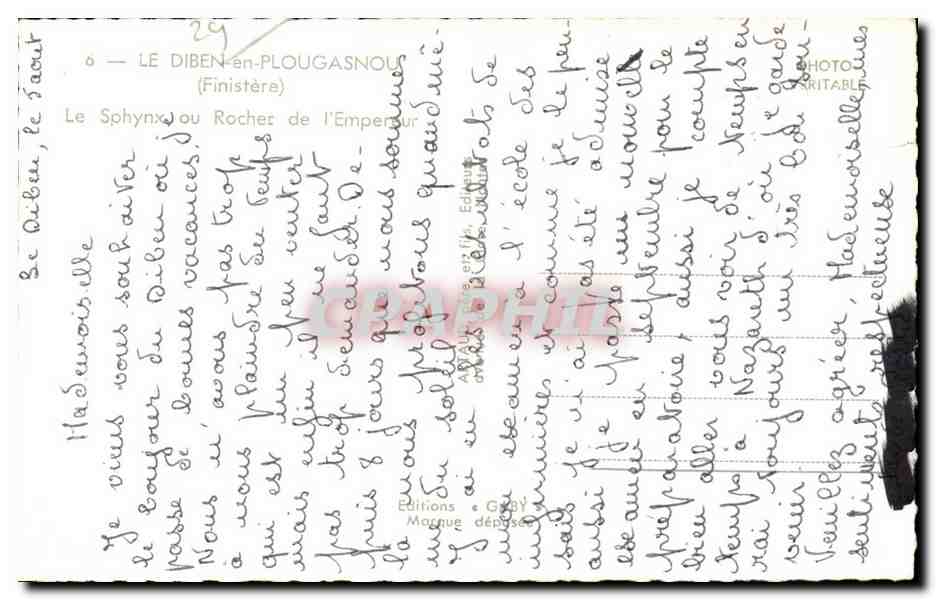 29
6 — LE DIBEN-en-PLOUGASNOU
(Finistère)
Le Sphynx ou Rocher de l'Empereur
PHOTO
VÉRITABLE
Editions « GABY »
Marque déposée
ARTAUD Père et Fils, Editeurs
CPAPHIL
Le Diben, le 5 aout
Mademoiselle
Je viens vous souhaiter
le bonjour du Diben où je
passe de bonnes vacances.
Nous n'avons pas trop
à nous plaindre du temps
qui est un peu venter
mais enfin il ne faut
pas trop demander. De-
puis 8 jours que nous sommes
là nous profitons quand mê-
me du soleil.
J'ai eu les résultats de
mon examen à l'école des
infirmières et comme je le pen-
sais je n'ai pas été admise
aussi je passe un nouvel
examen en septembre pour le
préparatoire, aussi je compte
bien aller vous voir de temps en
temps à Nazareth d'où je garde-
rai toujours un très bon sou-
venir.
Veuillez agréer, Mademoiselle, mes
sentiments respectueuse